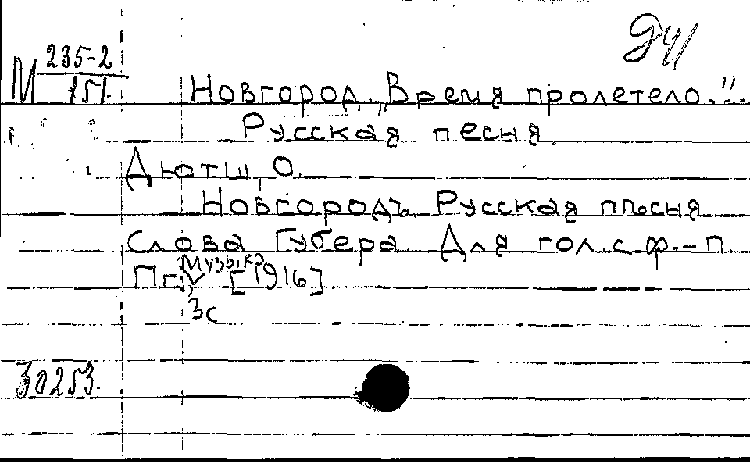 941
М 235-2
151.
Новгород. „Время пролетело..."
Русская песня
Дютш, О.
Новгородъ. Русская пѣсня
Слова Губера Для гол. с ф.-п.
Пг., Музыка [1916]
3с
30253.